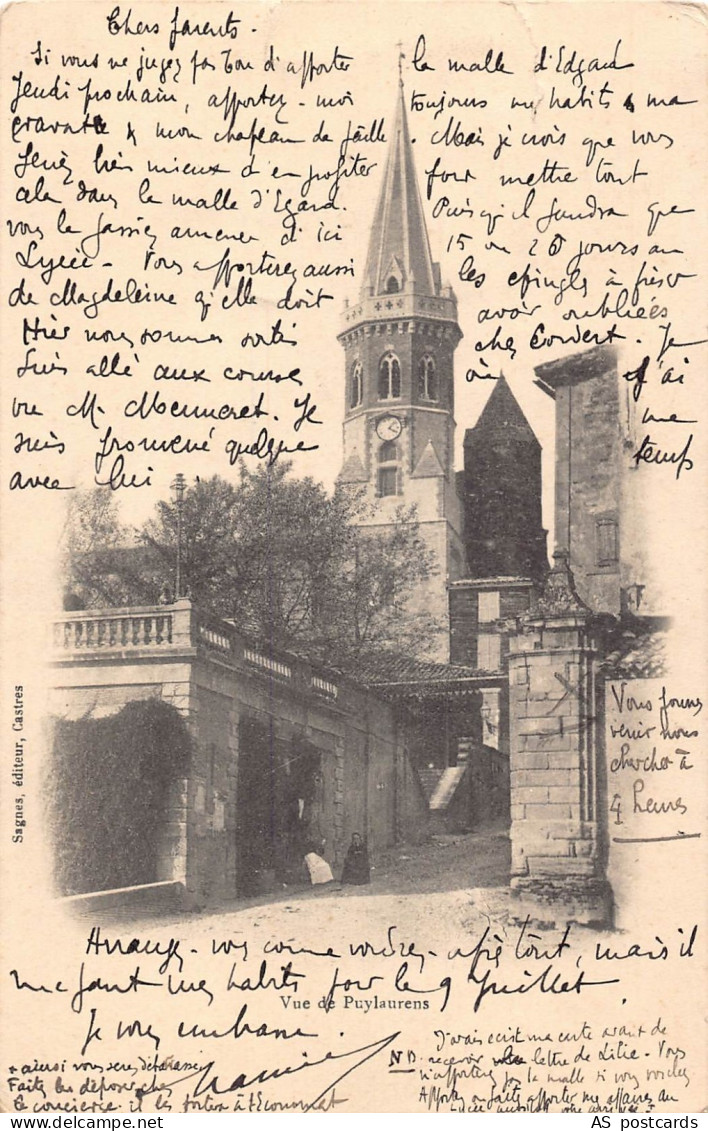 Chers parents.
Si vous ne jugez pas bon d'apporter la malle d'Edgard
Jeudi prochain, apportez-moi toujours mes habits & ma
cravate & mon chapeau de paille. Mais je crois que vous
feriez bien mieux d'en profiter pour mettre tout
cela dans la malle d'Egard. Puisqu'il faudra que
vous la fassiez amener d'ici 15 ou 20 jours au
Lycée - Vous apporterez aussi les épingles à friser
de Magdeleine qu'elle doit avoir oubliées
Hier nous sommes sortis chez Couvert. Je
suis allé aux courses où j'ai
vu M. Menneret. Je me
suis promené quelque temps
avec lui
Vous pouvez
venir nous
chercher à
4 heures
Arrangez-vous comme vous voudrez après tout, mais il
me faut mes habits pour le 9 Juillet
Vue de Puylaurens
Je vous embrasse.
+ ainsi vous serez débarrassés
Faites les déposer chez
le concierge il les portera à l'Economat
NB. J'avais écrit ma carte avant de
recevoir lettre de Lilie. Vous
n'apporterez pas la malle si vous voulez
Apportez ou faites apporter mes affaires au
Sagnes, éditeur, Castres
AS postcards